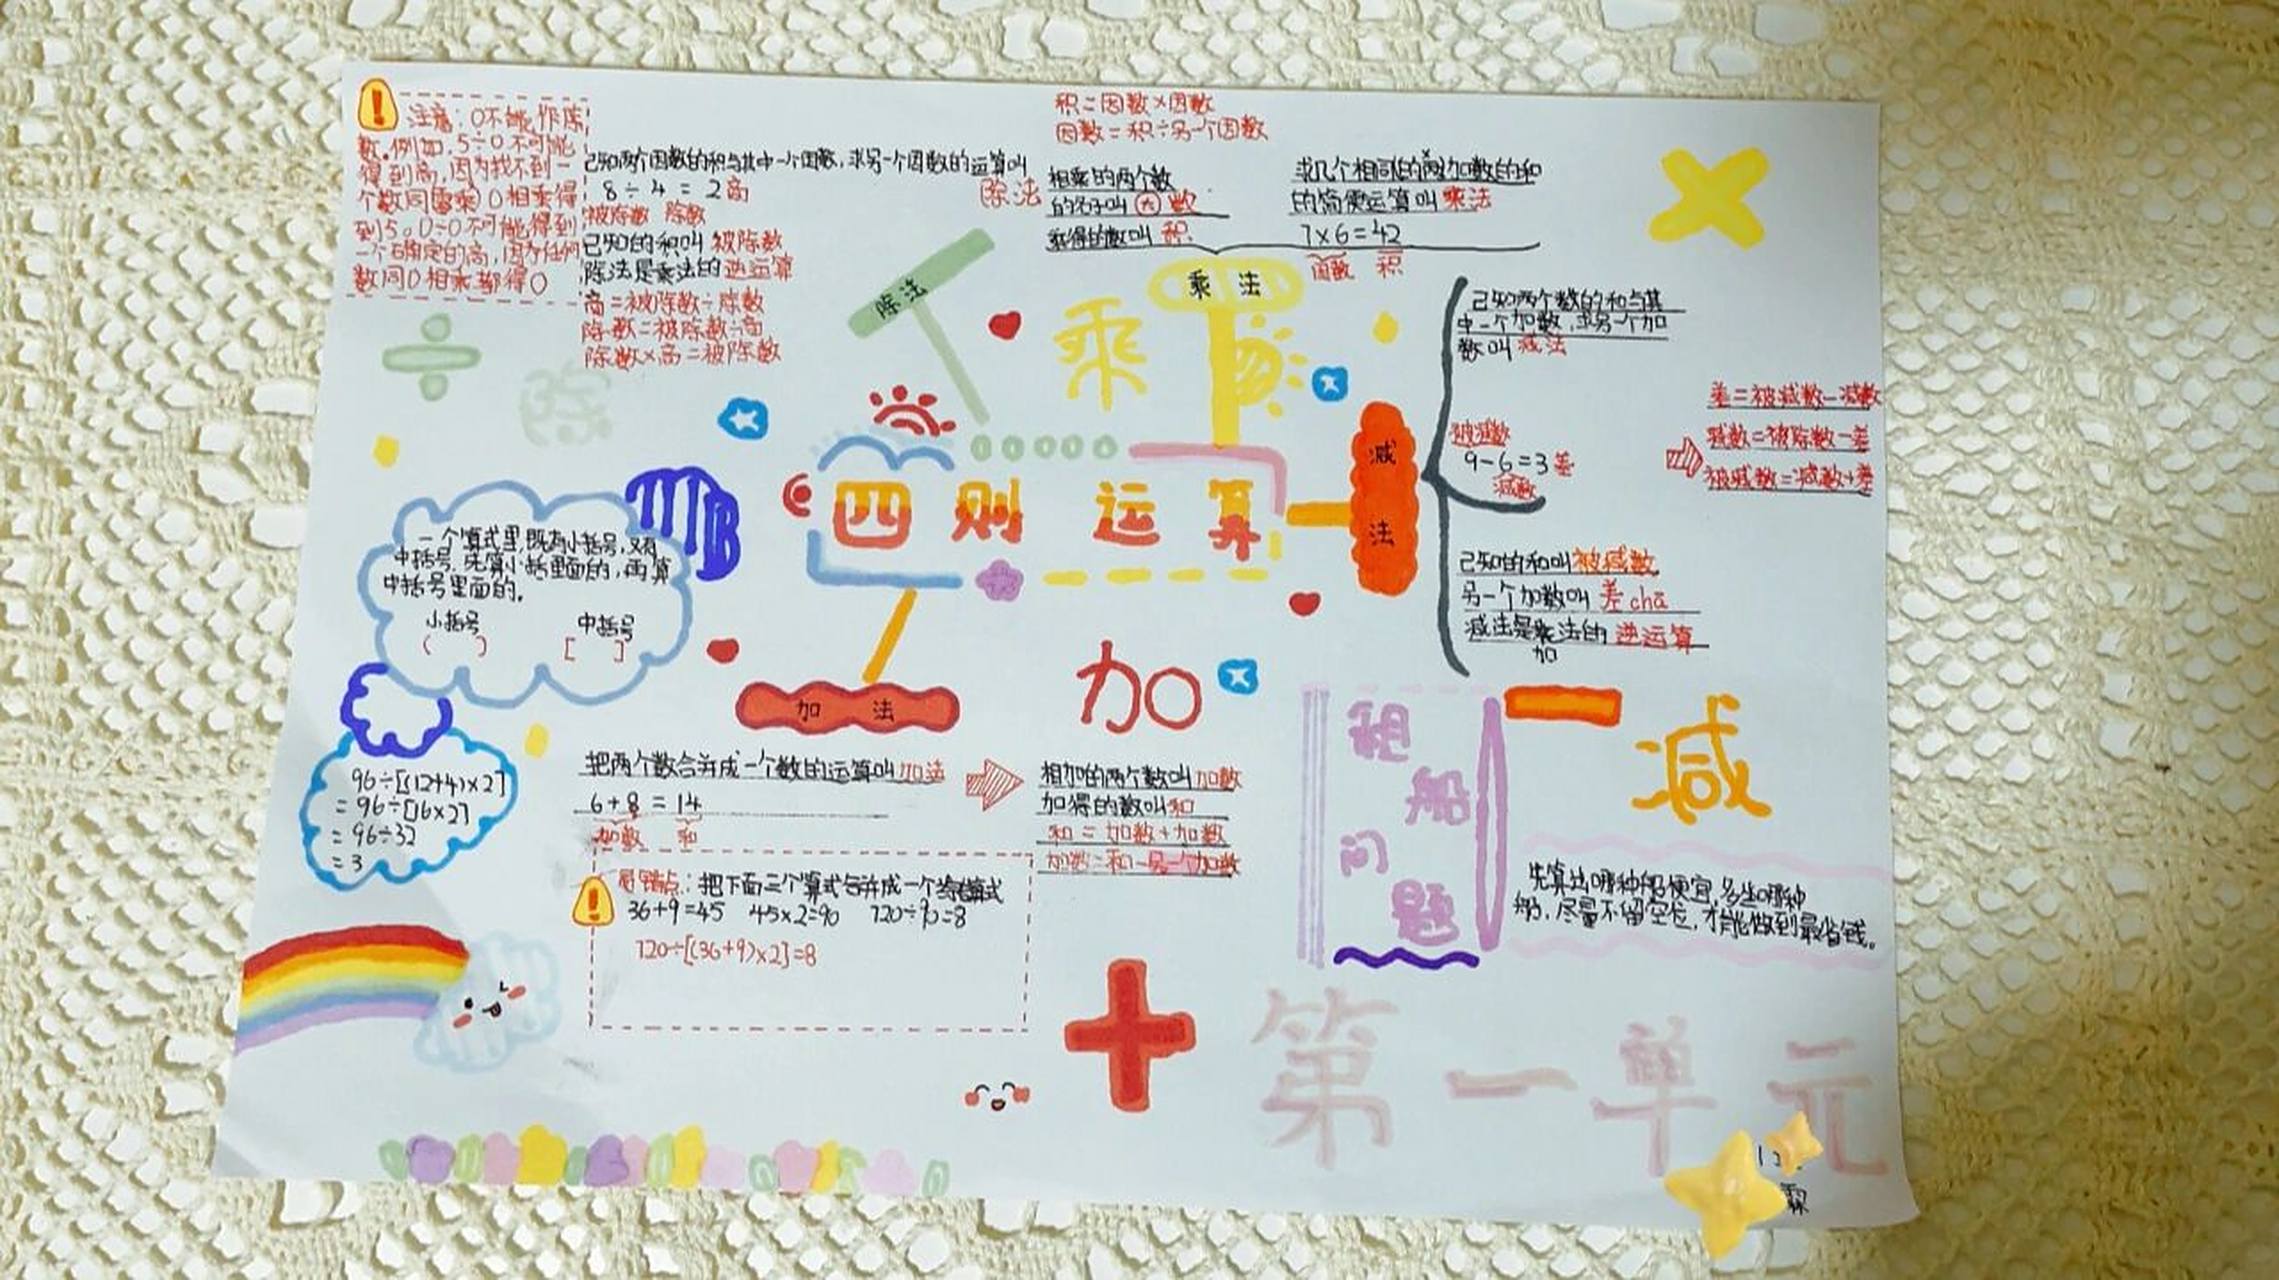 注意：0不能作除
数.例如.5÷0不可能
得到高,因为找不到一
个数同0相乘得
到5。0÷0不可能得到
一个确定的高,因为任何
数同0相乘都得0
已知两个因数的积与其中一个因数,求另一个因数的运算叫
除法
8÷4=2高
被除数 除数
已知的积叫被除数
除法是乘法的逆运算
高=被除数÷除数
除数=被除数÷高
除数×高=被除数
积=因数×因数
因数=积÷另一个因数
相乘的两个数
的名子叫因数
乘得的数叫积
求几个相同的加数的和
的简便运算叫乘法
7×6=42
因数 积
除法
乘
乘法
÷
除
×
四则运算
减法
已知两个数的和与其
中一个加数,求另一个加
数叫减法
被减数
9-6=3差
减数
差=被减数-减数
减数=被除数-差
被减数=减数+差
已知的和叫被减数
另一个加数叫差chā
减法是加法的逆运算
一个算式里,既有小括号,又有
中括号.先算小括里面的,再算
中括号里面的.
小括号 中括号
( ) [ ]
96÷[(12+4)×2]
=96÷[16×2]
=96÷32
=3
加法
加
把两个数合并成一个数的运算叫加法
6+8=14
加数 和
相加的两个数叫加数
加得的数叫和
和=加数+加数
加数=和-另一个加数
易错点:把下面三个算式合并成一个综合算式
36+9=45 45×2=90 720÷90=8
720÷[(36+9)×2]=8
租船问题
减
先算出哪种船便宜,多坐哪种
船,尽量不留空位,才能做到最省钱。
第一单元